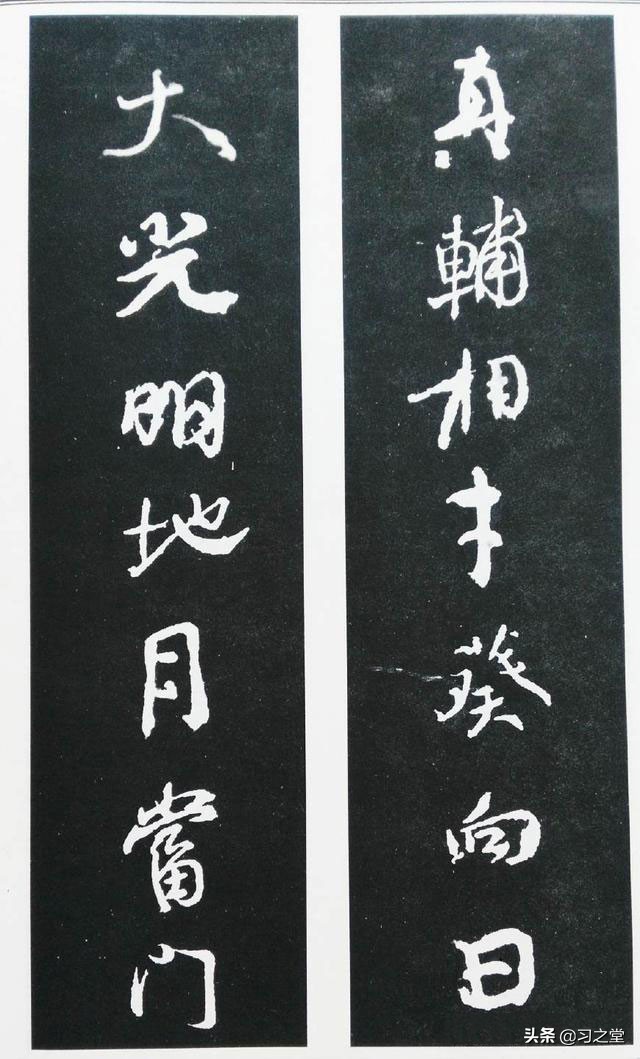 真輔相才葵向日
大光明地月當门
头条 @习之堂